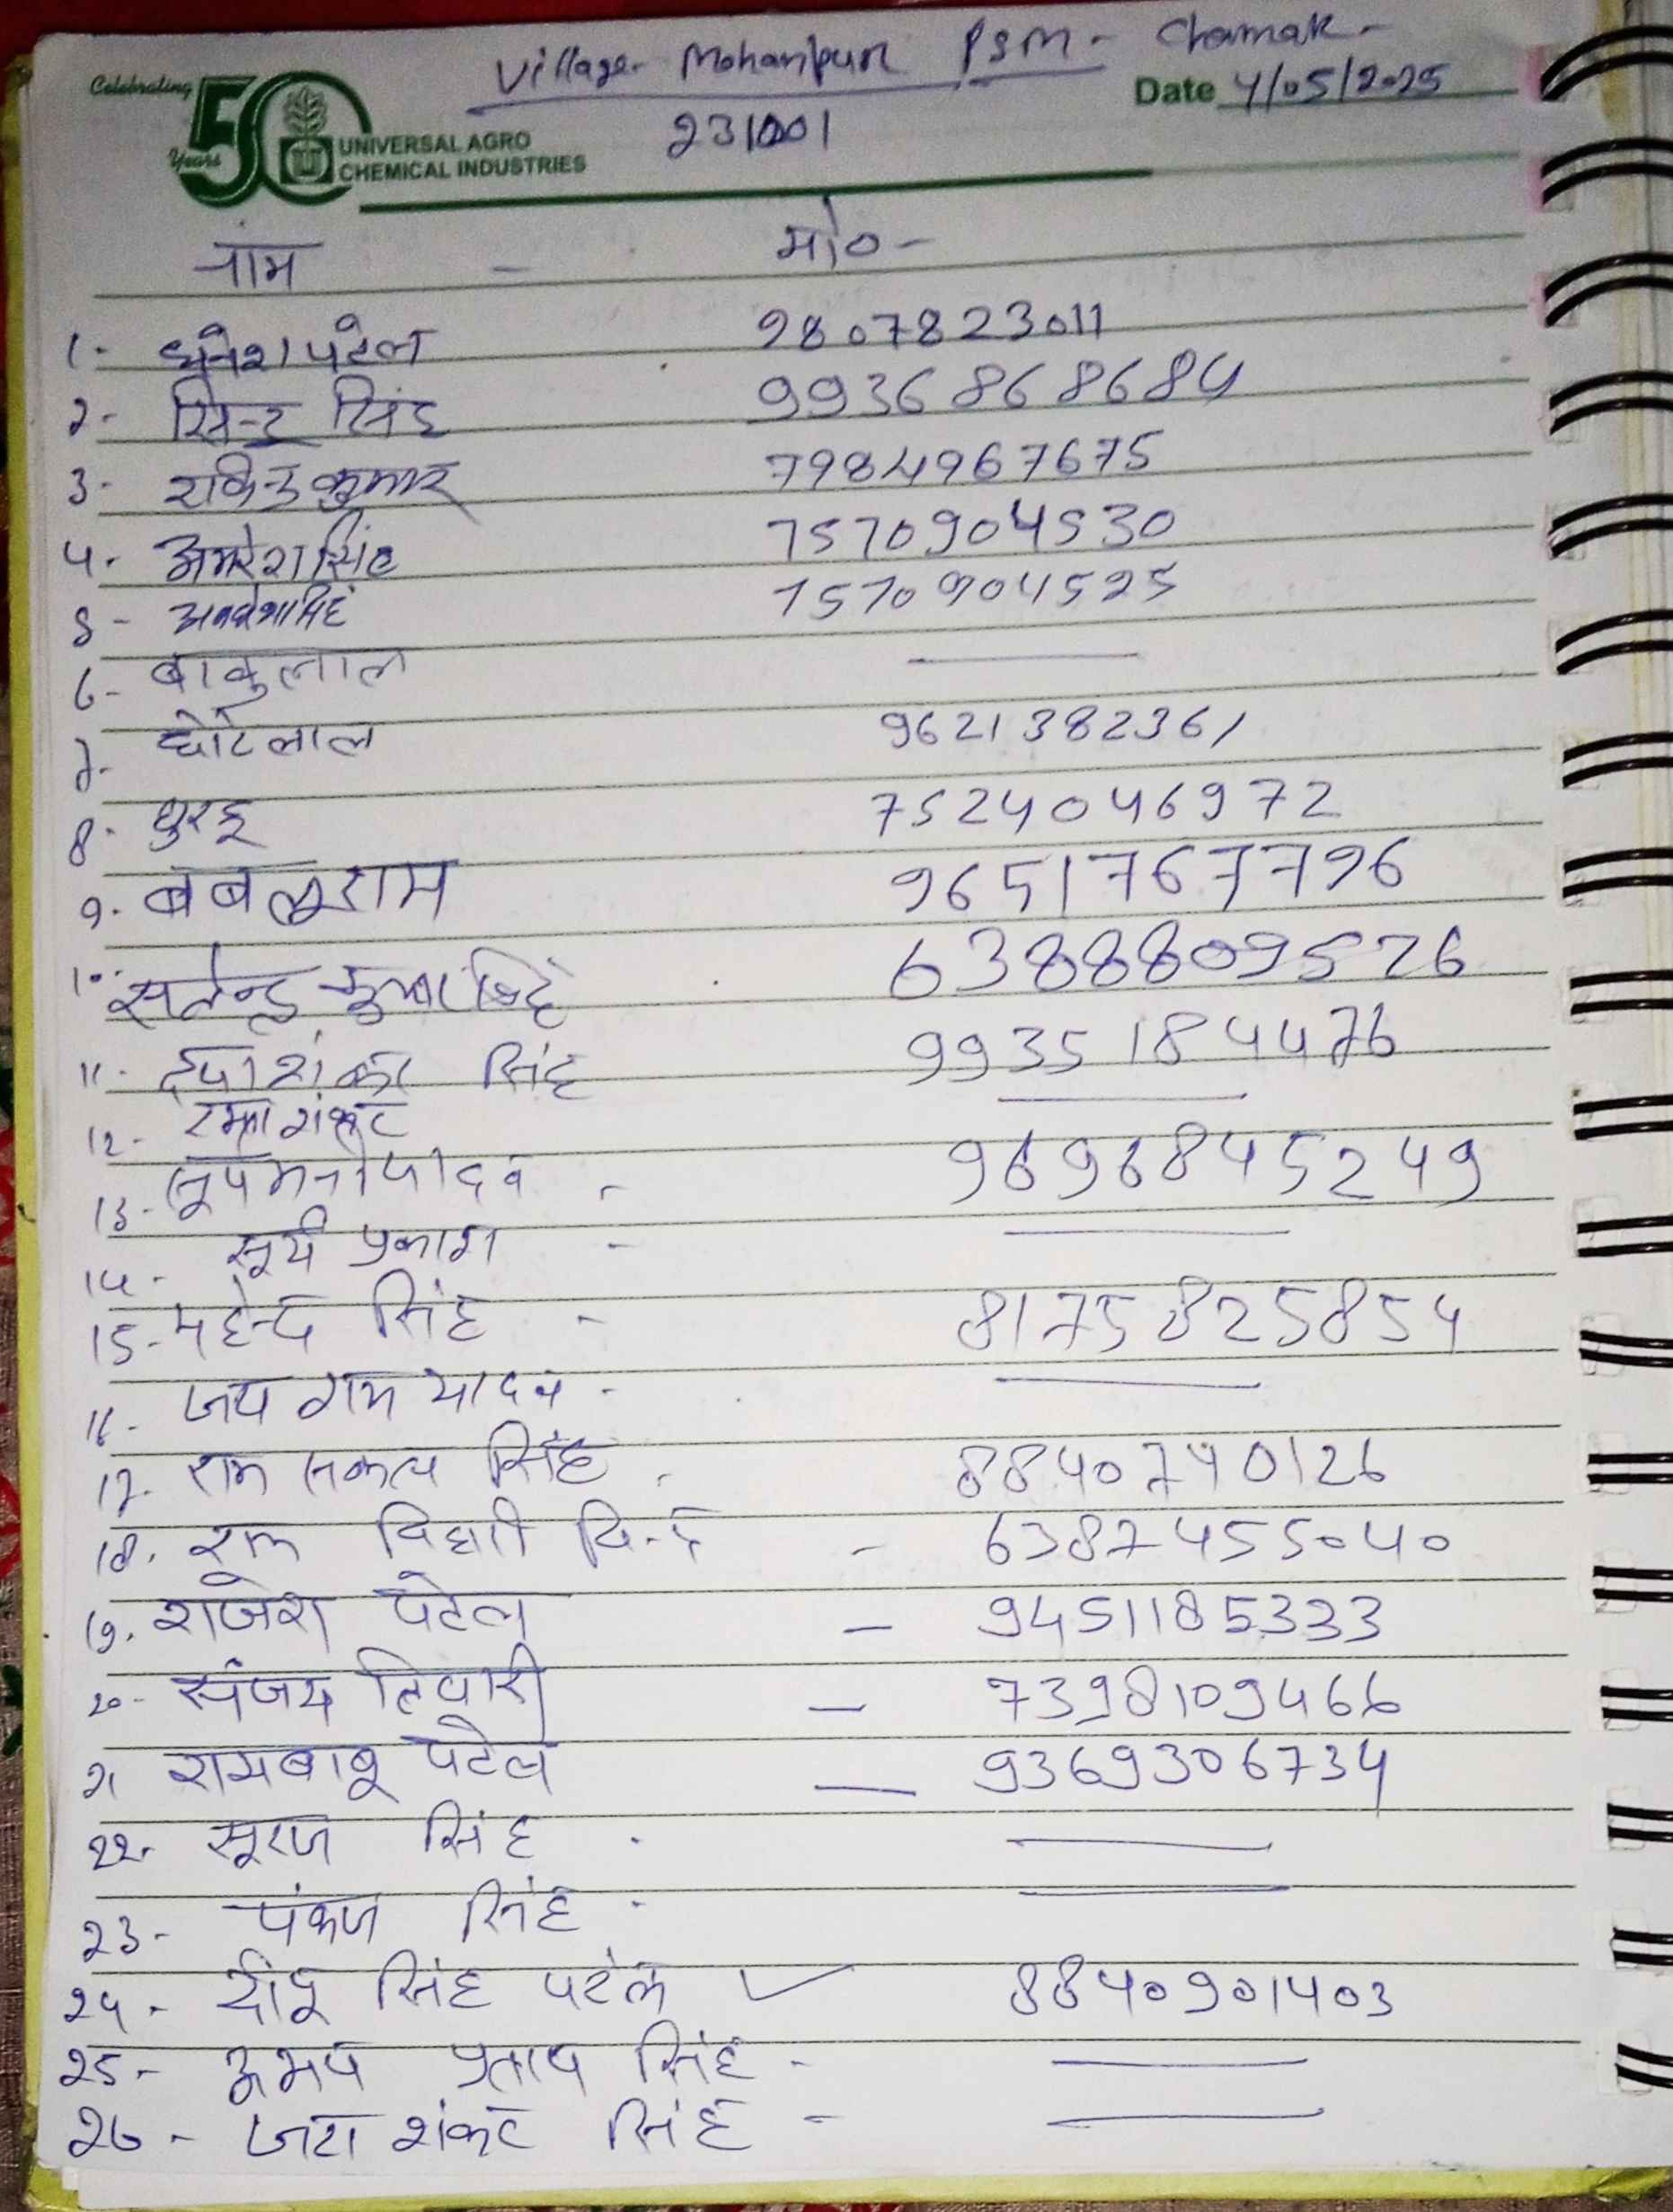 Village- Mohanpur PSM- Chamak-
Celebrating 50 Years
UNIVERSAL AGRO
CHEMICAL INDUSTRIES
Date 4/05/2025
231001
नाम - मो०-
1- धनेश पटेल 9807823011
2- सिंह 9936868684
3- कुमार 7984967675
4- अमरेश सिंह 7570904530
5- 7570904525
6- बाबुलाल
7- छोटेलाल 9621382361
8- घुरहू 7524046972
9- बबलू राम 9651767796
10- सतेन्द्र कुमार सिंह 6388809526
11- दयाशंकर सिंह 9935184476
12- रमाशंकर
13- यादव - 9696845249
14- सूर्य प्रकाश -
15- महेन्द्र सिंह - 8175825854
16- जय राम यादव -
17- राम सकल सिंह 8840740126
18. राम बिहारी बिन्द - 6387455040
19. राजेश पटेल - 9451185333
20- संजय तिवारी - 7398109466
21 रामबाबू पटेल - 9369306734
22- सूरज सिंह
23- पंकज सिंह -
24- सिंह पटेल ✓ 8840901403
25- अभय प्रताप सिंह -
26- जय शंकर सिंह -